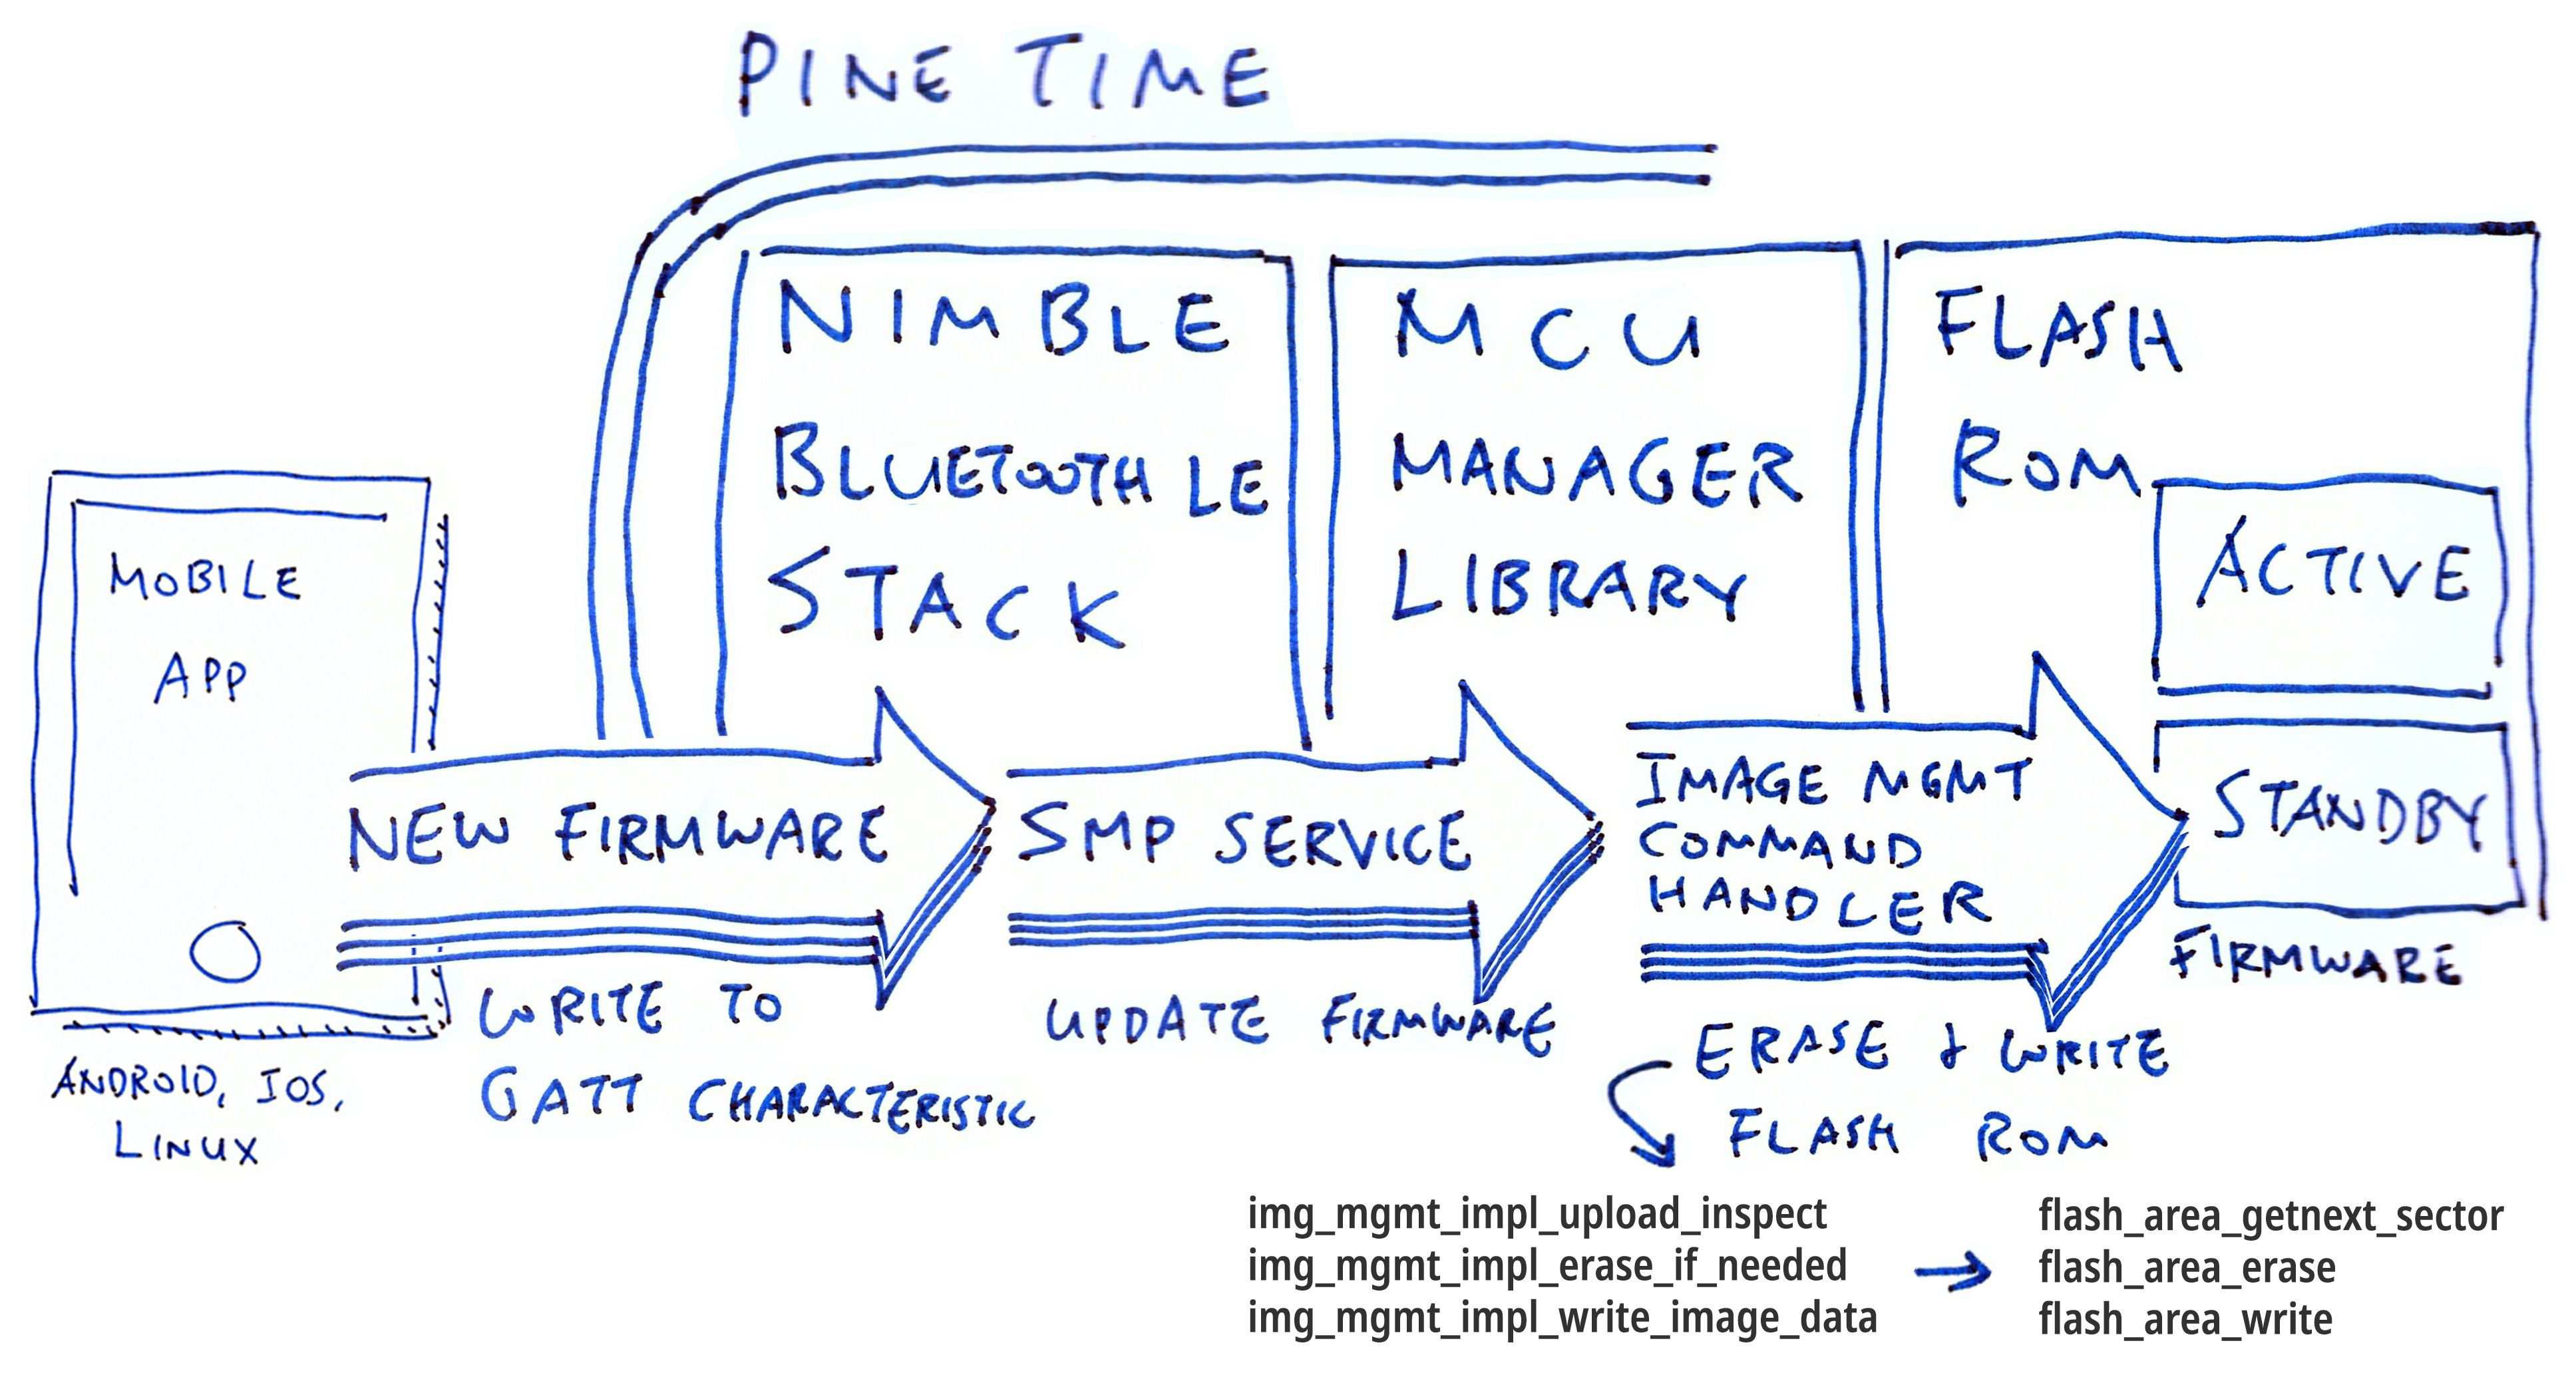 PINE TIME
NIMBLE
BLUETOOTH LE
STACK
MCU
MANAGER
LIBRARY
FLASH
ROM
ACTIVE
STANDBY
FIRMWARE
MOBILE
APP
ANDROID, IOS,
LINUX
NEW FIRMWARE
WRITE TO
GATT CHARACTERISTIC
SMP SERVICE
UPDATE FIRMWARE
IMAGE MGMT
COMMAND
HANDLER
ERASE & WRITE
FLASH ROM
img_mgmt_impl_upload_inspect
img_mgmt_impl_erase_if_needed
img_mgmt_impl_write_image_data
→
flash_area_getnext_sector
flash_area_erase
flash_area_write